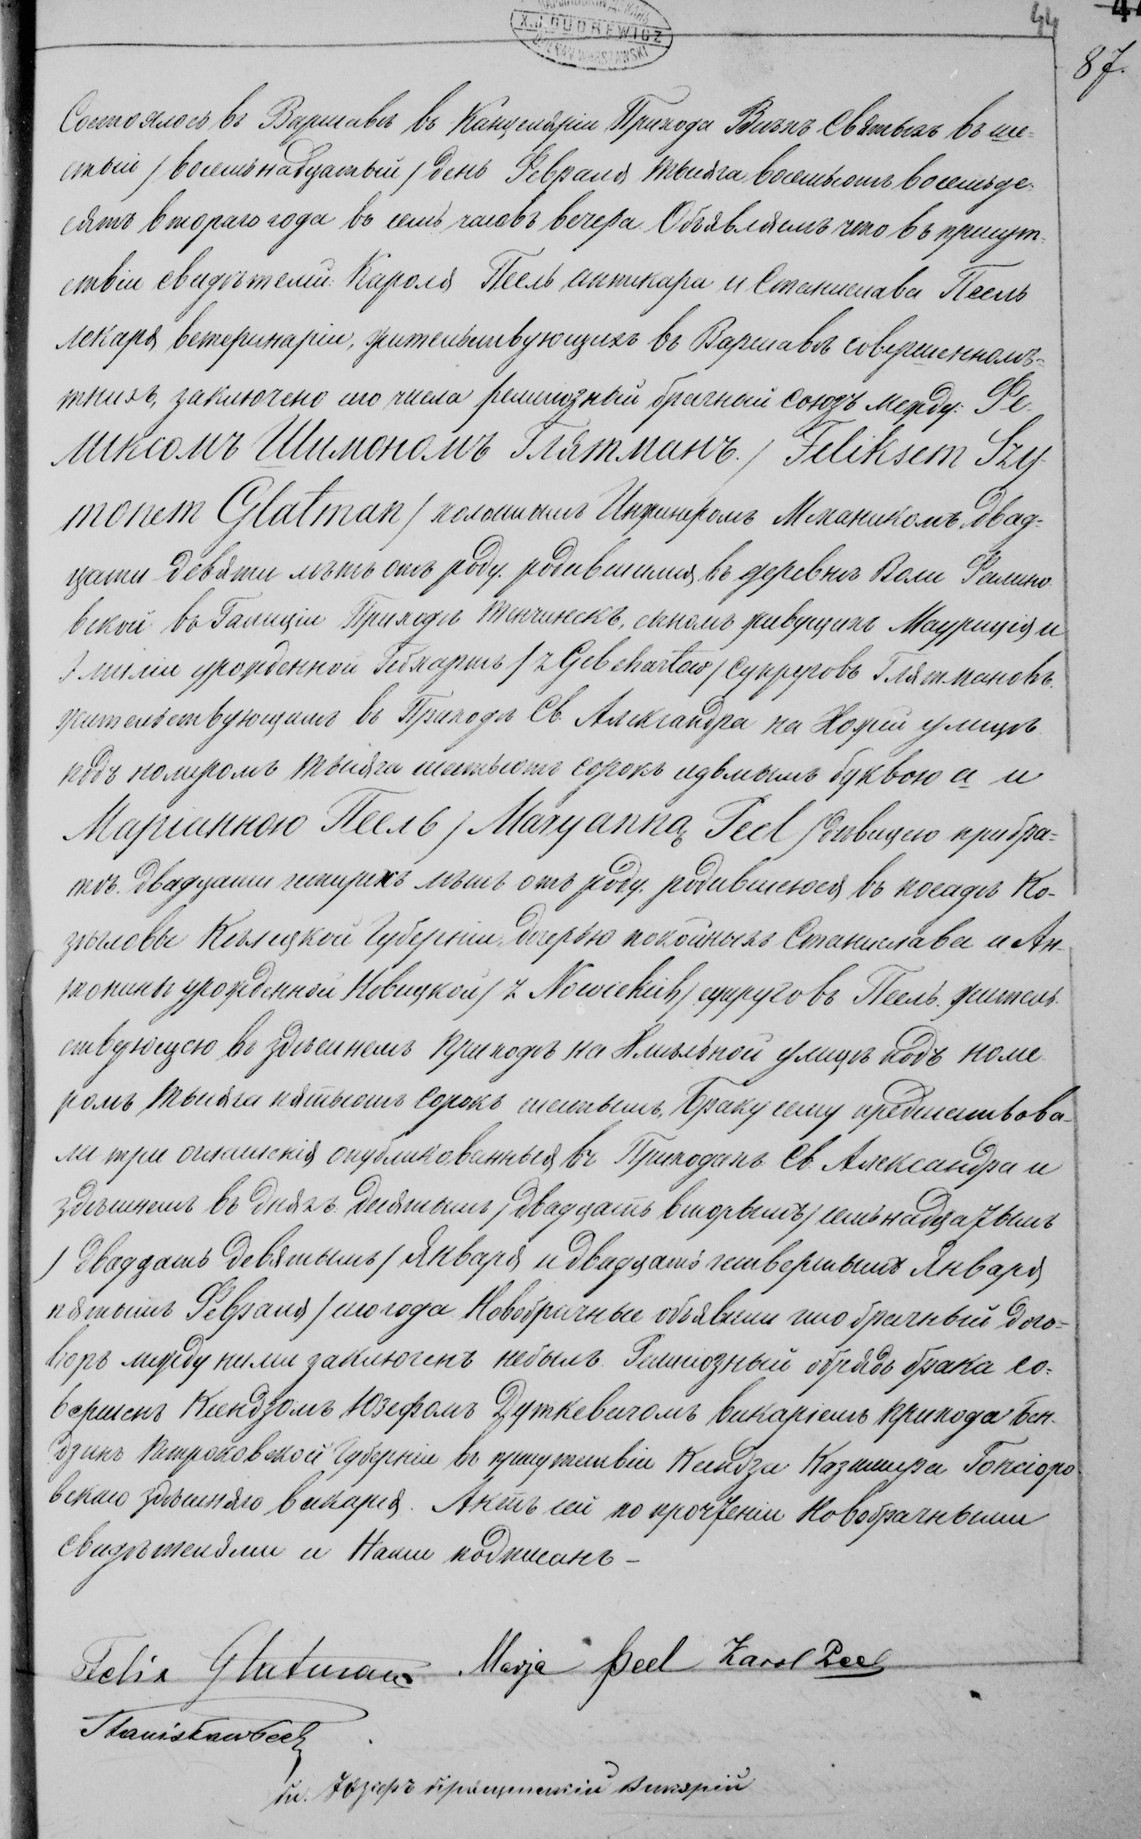 X.J.DUDREWICZ
WARSZAWSKI
44
87.
Состоялось въ Варшавѣ въ Канцеляріи Прихода Всѣхъ Святыхъ въ ше-
стый / восемьнадцатый / день Февраля тысяча восемьсотъ восемьде-
сятъ втораго года въ семь часовъ вечера. Объявляемъ что въ присут-
ствіи свидѣтелей: Кароля Пеель аптекаря и Станислава Пеель
лекаря ветеринаріи, жительствующихъ въ Варшавѣ совершеннолѣ-
тнихъ, заключено сего числа религіозный брачный союзъ между: Фе-
ликсомъ Шимономъ Глятманъ. / Feliksem Szy-
monem Glatman / холостымъ Инженеромъ Механикомъ двад-
цати девяти лѣтъ отъ роду. родившимся въ деревнѣ Воли Филипо
вской въ Галиціи Приходѣ Тенчинскъ, сыномъ живущихъ Мауриція и
Эмиліи урожденной Гебхартъ / z Gebchartów / супруговъ Глятмановъ.
жительствующимъ въ Приходѣ Св. Александра на Хожей улицѣ
подъ номеромъ тысяча шестьсотъ сорокъ седьмымъ буквою а и
Маріанною Пеель / Maryanną Peel / дѣвицею при бра-
тѣ. двадцати четырехъ лѣтъ отъ роду. родившеюся въ посадѣ Ко-
зѣгловы Кѣлецкой Губерніи, дочерью покойныхъ Станислава и Ан-
тонины урожденной Новицкой / z Nowickich / супруговъ Пеель. житель
ствующею въ здѣшнемъ приходѣ на Хмѣльной улицѣ подъ номе
ромъ тысяча пятьсотъ сорокъ шестымъ. Браку сему предшествова-
ли три оглашенія опубликованныя въ Приходахъ Св. Александра и
здѣшнемъ въ дняхъ десятымъ / двадцать вторымъ / семьнадцатымъ
/ двадцать девятымъ / Января и двадцать четвертымъ Января
пятымъ Февраля / сего года. Новобрачные объявили что брачный дого-
воръ между ними заключенъ небылъ. Религіозный обрядъ брака со-
вершенъ Ксендзомъ Юзефомъ Дуткевичомъ викаріемъ прихода Бен-
дзинъ Петроковской Губерніи въ присутствіи Ксендза Казимира Гонсіоро-
вскаго здѣшняго викарія. Актъ сей по прочтеніи Новобрачными
свидѣтелями и Нами подписанъ –
Felix Glatman Marja Peel Karol Peel
Stanisław Peel
Кс. Юзефъ викарій